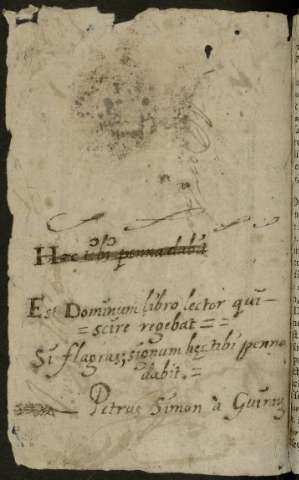 Hec tibi penna dabit
Est Dominum libro lector qui=
=scire regebat==
Si flagras; signum hec tibi penna
dabit.=
Petrus Simon à